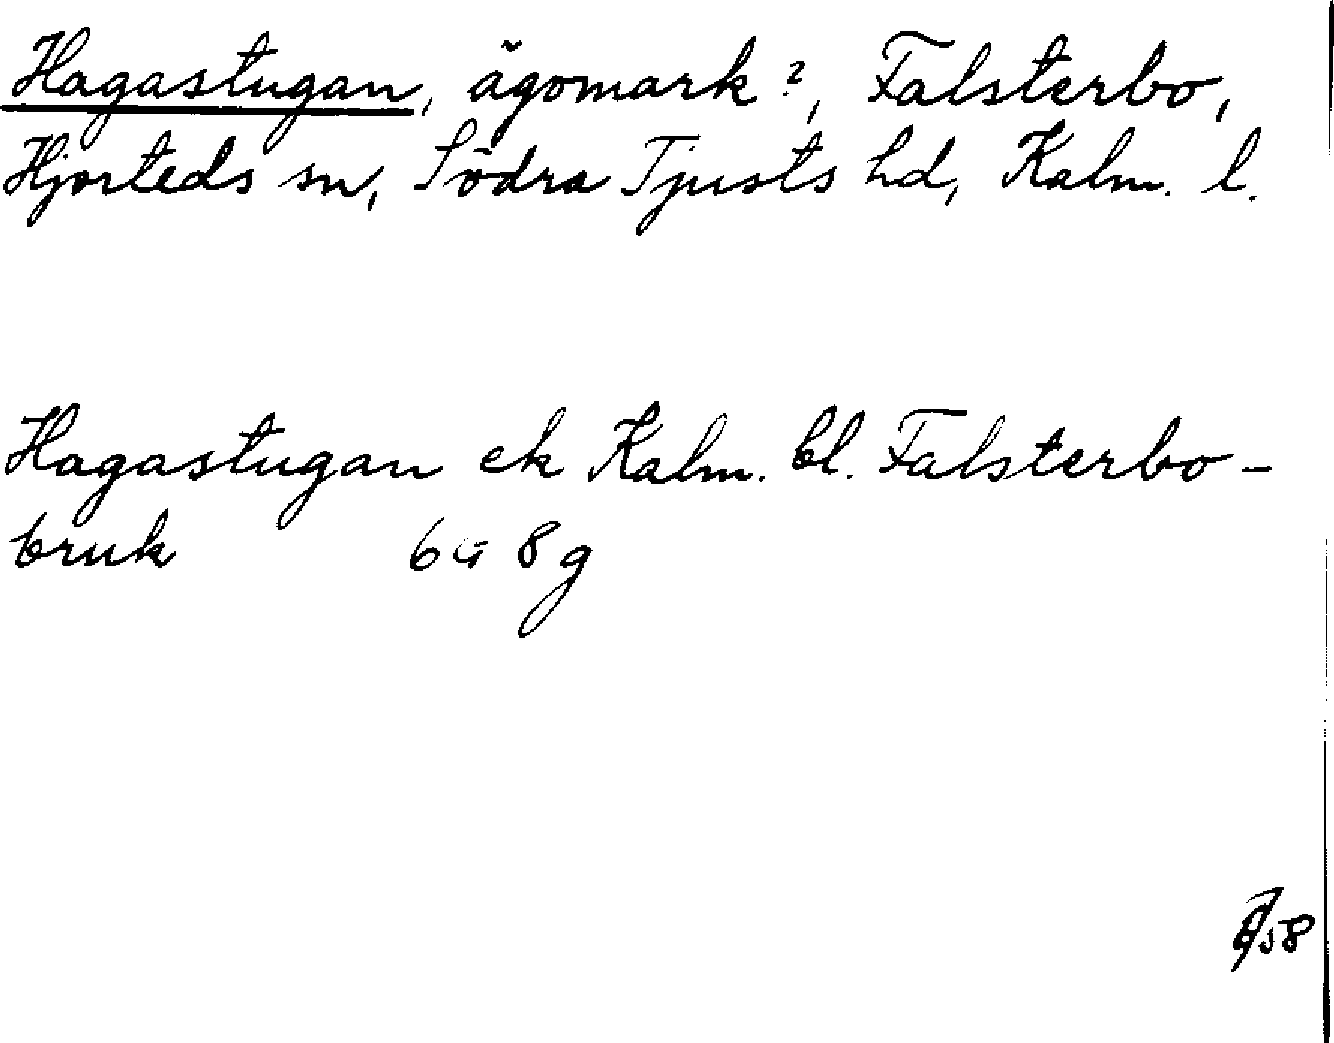 Hagastugan, ägomark?, Falsterbo,
Hjorteds sn, Södra Tjusts hd, Kalm. l.
Hagastugan ek Kalm. bl. Falsterbo-
bruk 6G 8g
58